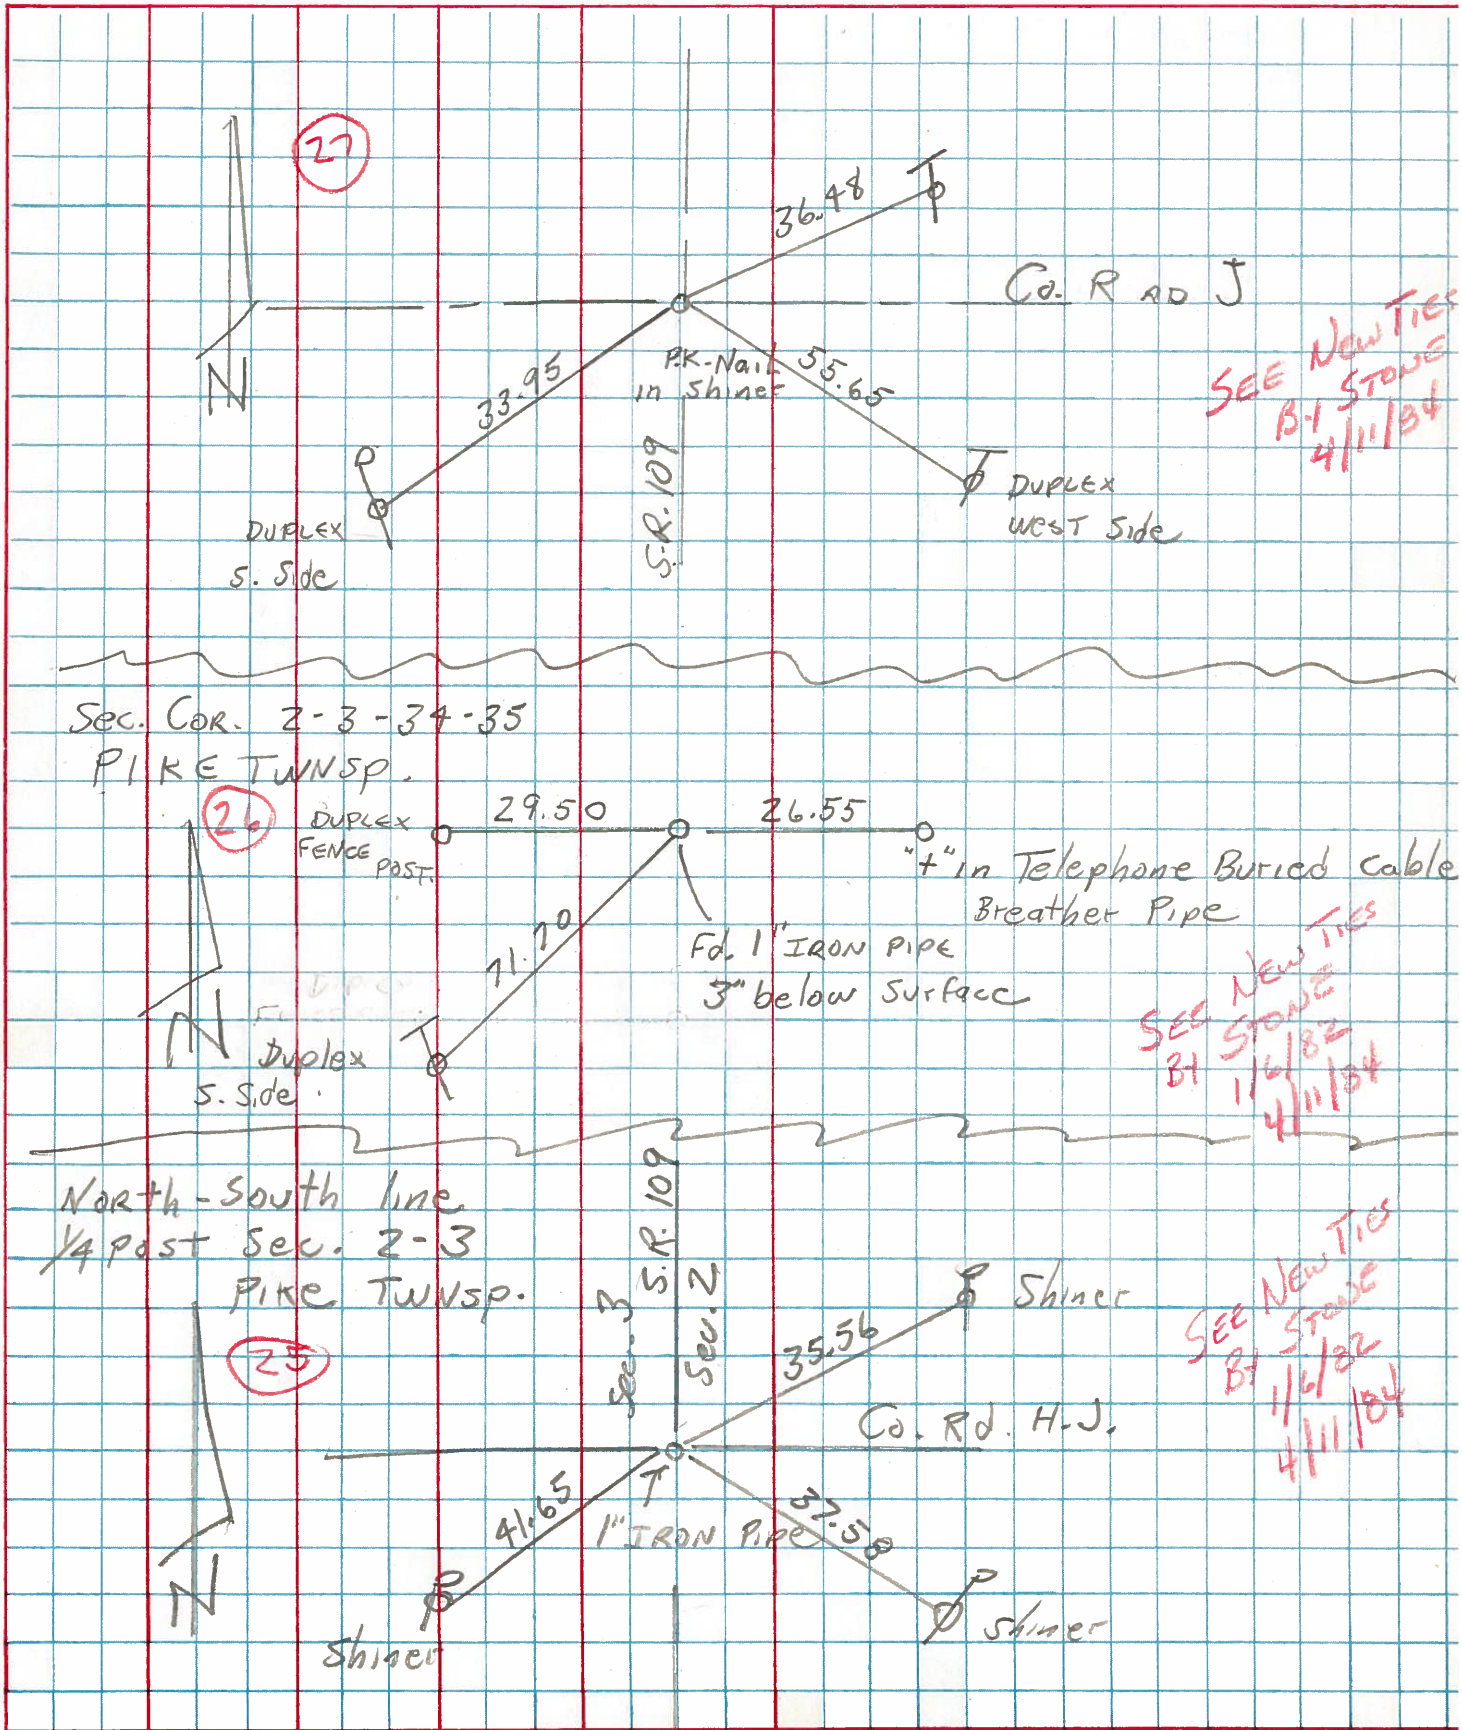 27
36.48
Co. R AD J
P.K-Nail
in Shiner
33.95
55.65
S.R. 109
DUPLEX
S. Side
DUPLEX
WEST Side
SEE NEW TIES
B-1 STONE
4/11/84
Sec. COR. 2-3-34-35
PIKE TWNSP.
26
DUPLEX
FENCE
POST.
29.50
26.55
"+" in Telephone Buried Cable
Breather Pipe
71.70
Fd. 1" IRON PIPE
3" below Surface
Duplex
S. Side.
SEE NEW TIES
B-1 STONE
1/6/82
4/11/84
North-South line
1/4 post Sec. 2-3
PIKE TWNSP.
25
S.R. 109
Sec. 3
Sec. 2
35.56
Shiner
Co. Rd. H-J.
41.65
1" IRON PIPE
37.58
Shiner
Shiner
SEE NEW TIES
B-1 STONE
1/6/82
4/11/84
N
N
N